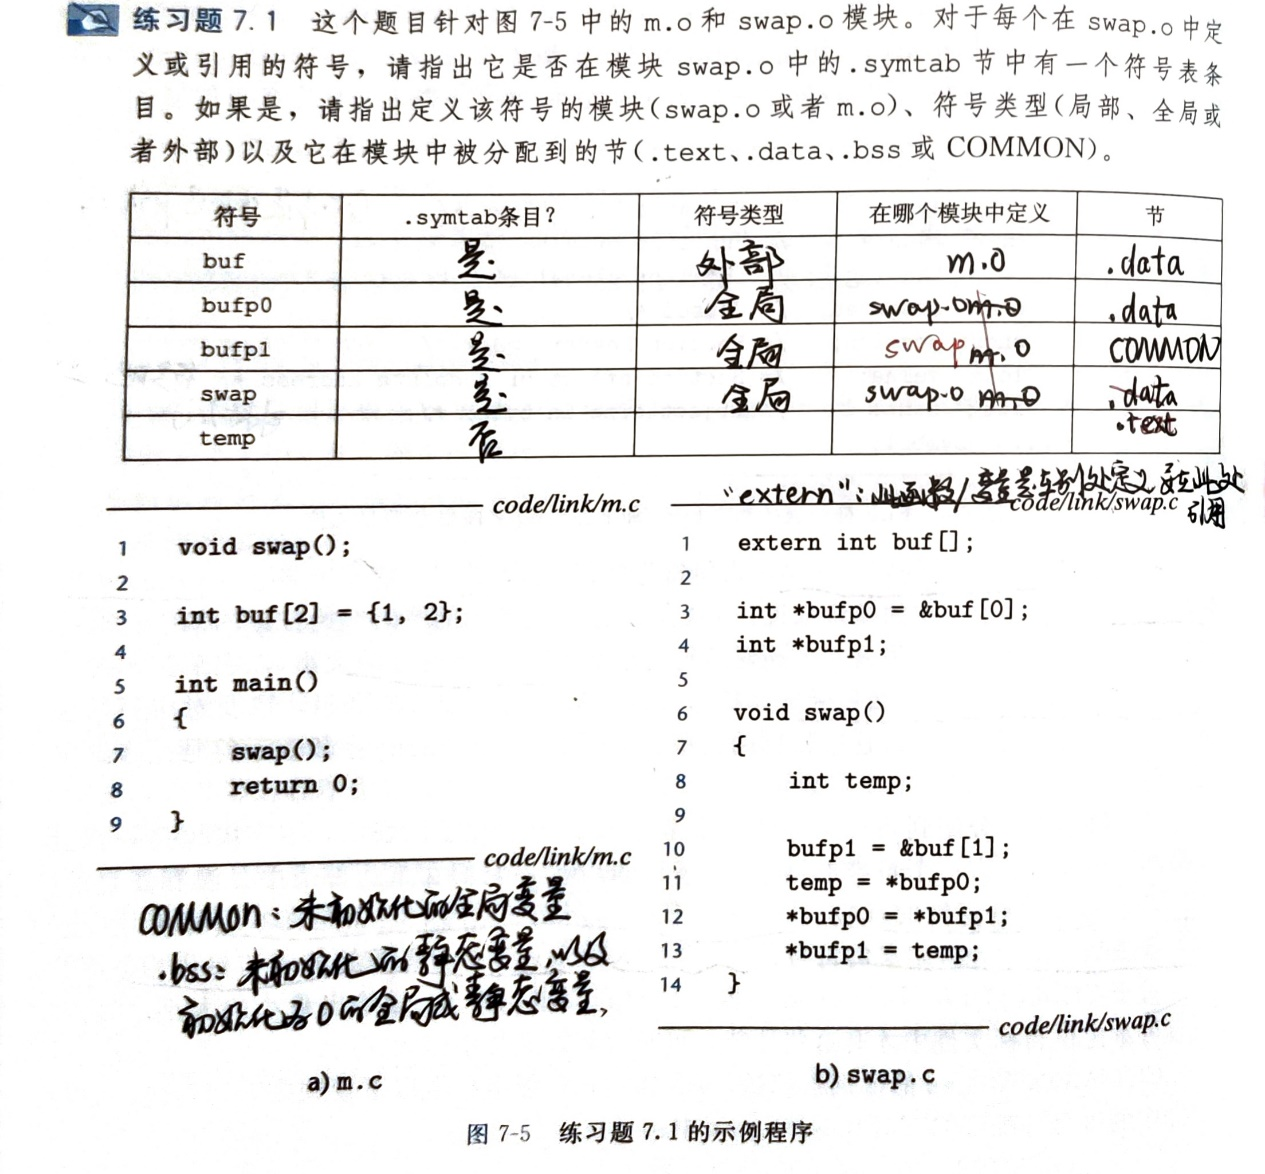 练习题 7.1 这个题目针对图 7-5 中的 m.o 和 swap.o 模块。对于每个在 swap.o 中定
义或引用的符号，请指出它是否在模块 swap.o 中的 .symtab 节中有一个符号表条
目。如果是，请指出定义该符号的模块(swap.o 或者 m.o)、符号类型(局部、全局或
者外部)以及它在模块中被分配到的节(.text、.data、.bss 或 COMMON)。
符号 .symtab条目? 符号类型 在哪个模块中定义 节
buf 是. 外部 m.o .data
bufp0 是. 全局 swap.o m.o .data
bufp1 是. 全局 swap m.o COMMON
swap 是. 全局 swap.o m.o .data
.text
temp 否
"extern"：此函数/变量是在别处定义 要在此处
引用
code/link/m.c
1 void swap();
2
3 int buf[2] = {1, 2};
4
5 int main()
6 {
7 swap();
8 return 0;
9 }
code/link/m.c
COMMON：未初始化的全局变量
.bss：未初始化的静态变量，以及
初始化为0的全局或静态变量，
a) m.c
code/link/swap.c
1 extern int buf[];
2
3 int *bufp0 = &buf[0];
4 int *bufp1;
5
6 void swap()
7 {
8 int temp;
9
10 bufp1 = &buf[1];
11 temp = *bufp0;
12 *bufp0 = *bufp1;
13 *bufp1 = temp;
14 }
code/link/swap.c
b) swap.c
图 7-5 练习题 7.1 的示例程序